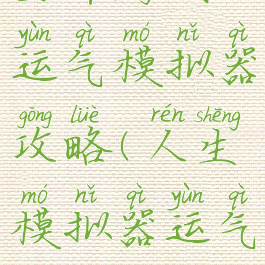 yùn qì mó nǐ qì
运气模拟器
gōng lüè rén shēng
攻略(人生
mó nǐ qì yùn qì
模拟器运气